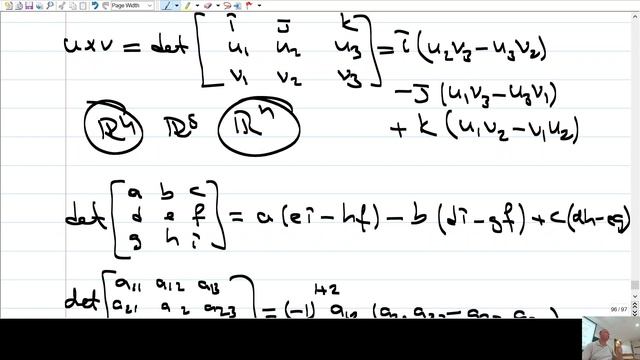 Page Width
u×v = det [ i j k ; u1 u2 u3 ; v1 v2 v3 ] = i (u2v3 − u3v2)
− j (u1v3 − u3v1)
+ k (u1v2 − v1u2)
ℝ⁴ ℝ⁵ ℝⁿ
det [ a b c ; d e f ; g h i ] = a (ei − hf) − b (di − gf) + c (dh − eg)
det [ a11 a12 a13 ; a21 a22 a23 = (−1)^1+2 a12 (
96 / 97